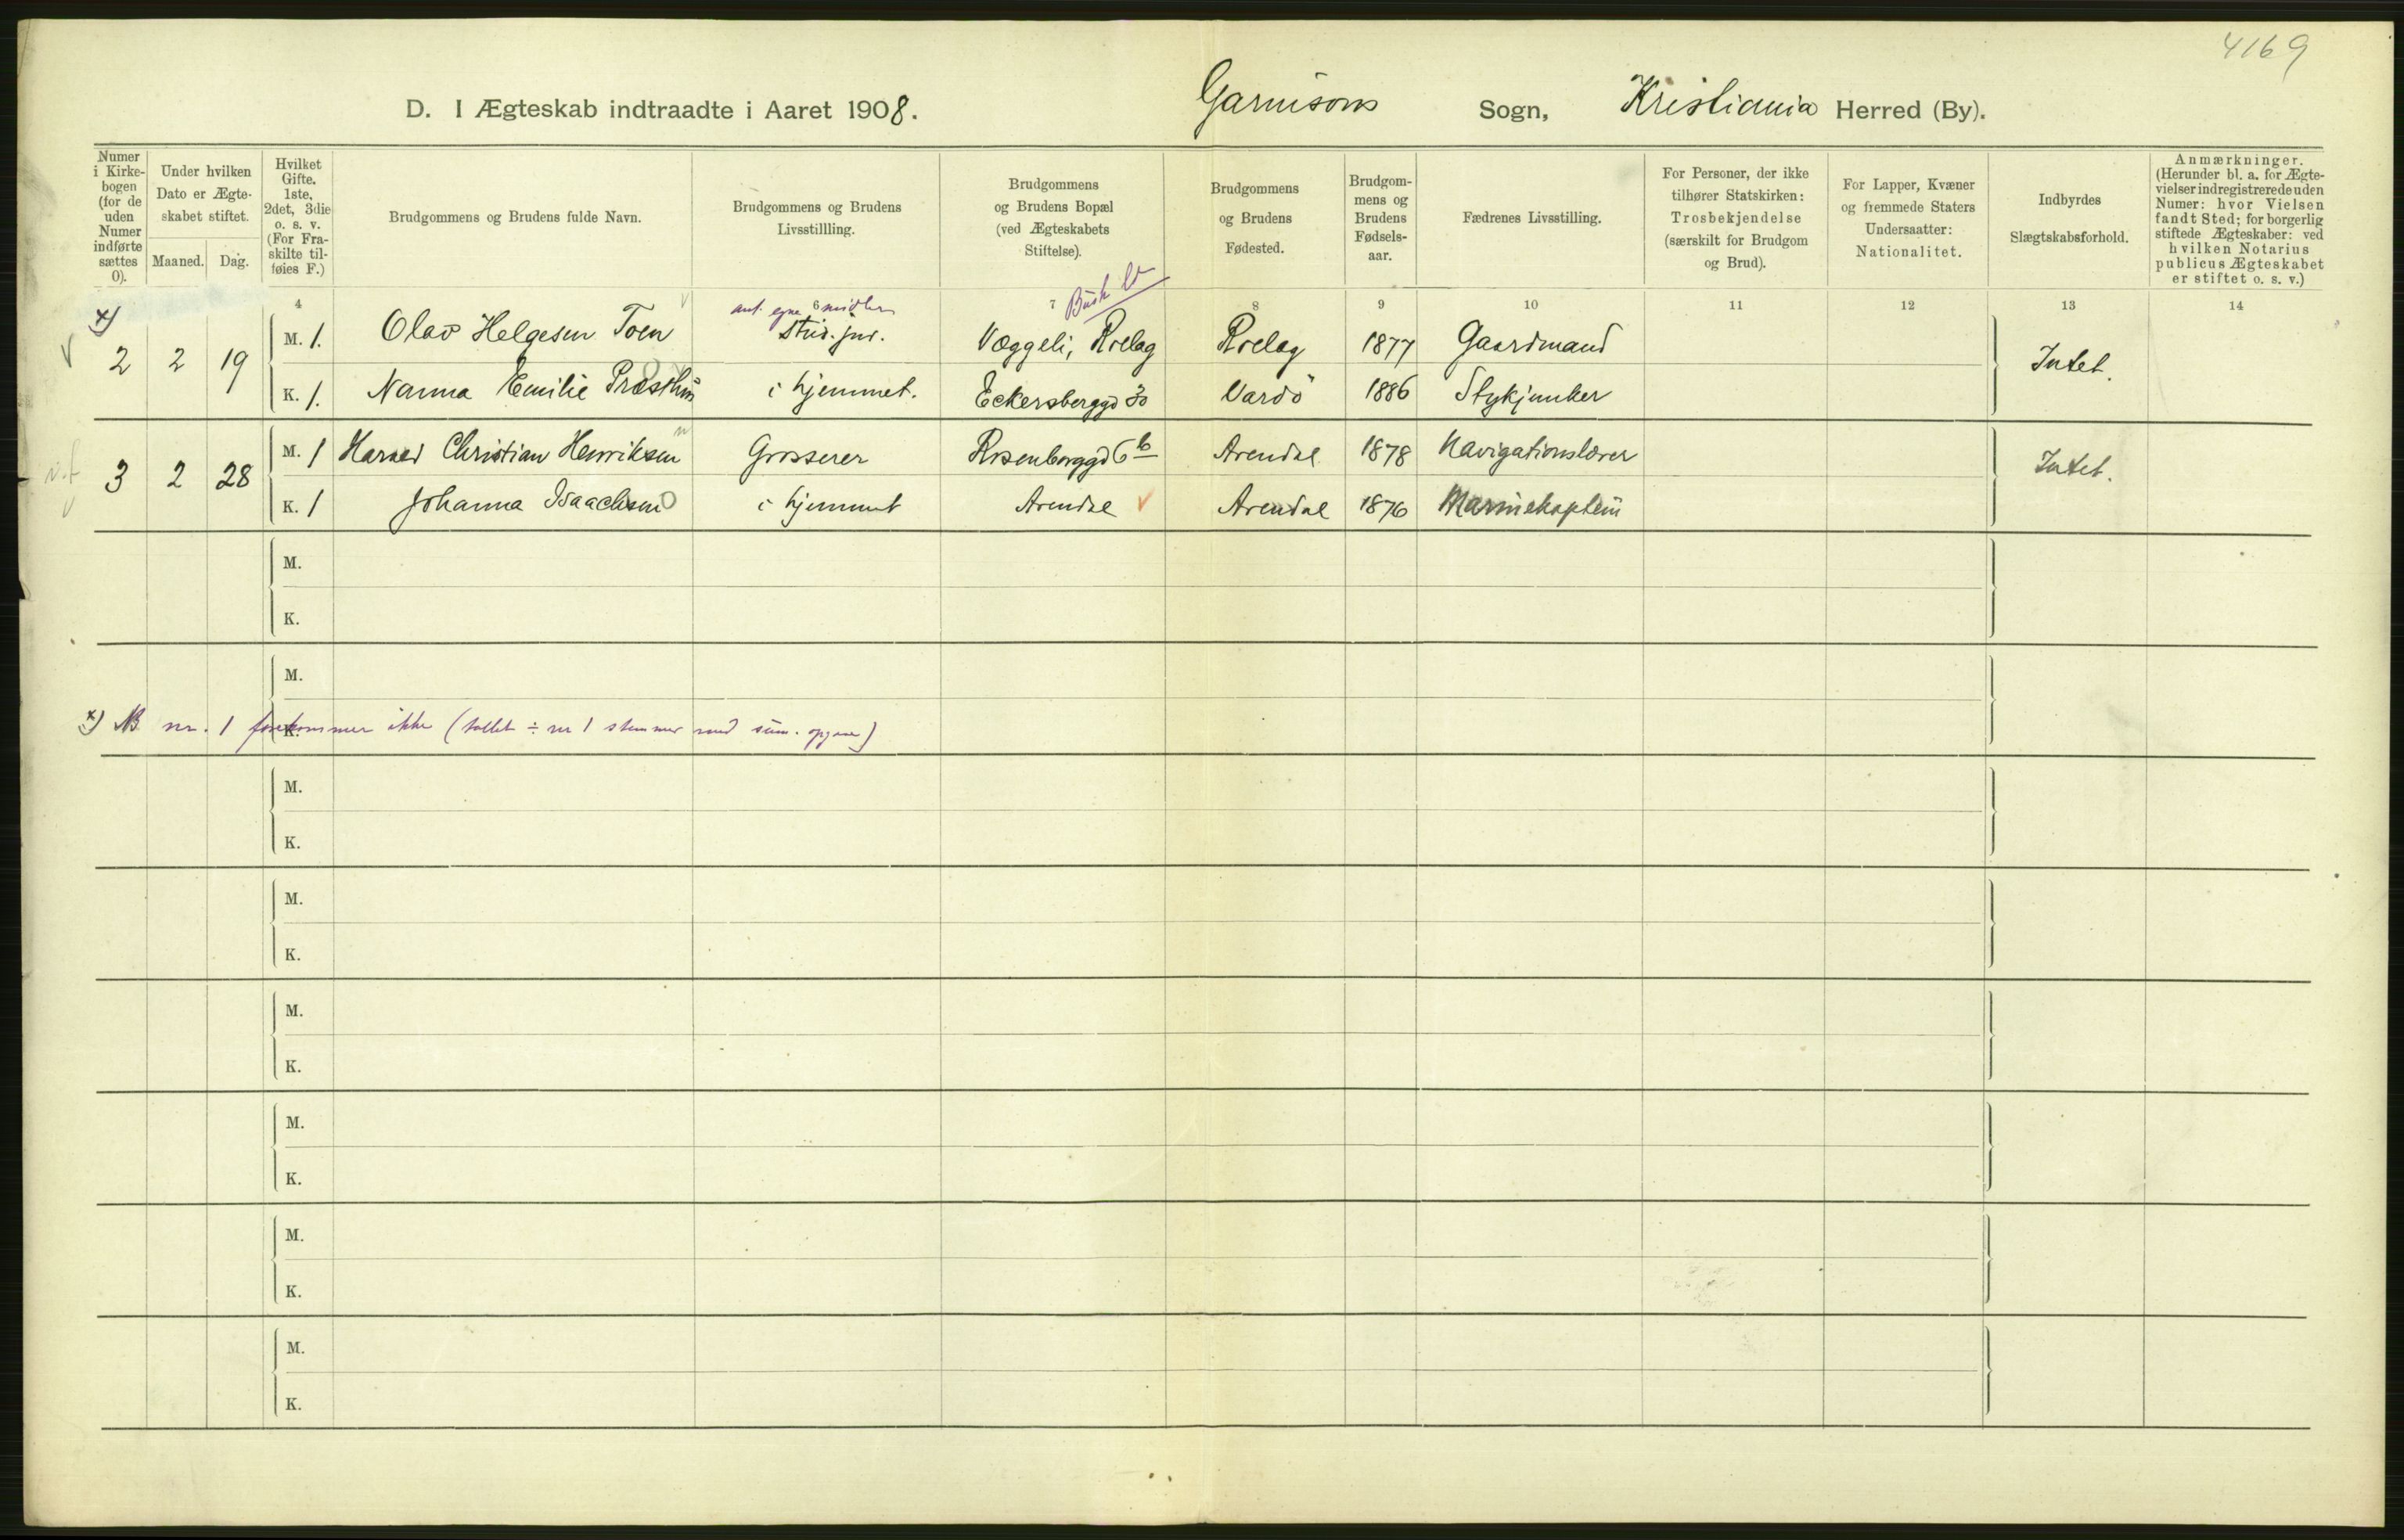 4169
D. I Ægteskab indtraadte i Aaret 1908. Garnisons Sogn, Kristiania Herred (By).
Numer i Kirkebogen (for de uden Numer indførte sættes 0).
Under hvilken Dato er Ægteskabet stiftet.
Maaned. Dag.
Hvilket Gifte. 1ste, 2det, 3die o. s. v. (For Fraskilte tilføies F.)
Brudgommens og Brudens fulde Navn.
Brudgommens og Brudens Livsstillling.
Brudgommens og Brudens Bopæl (ved Ægteskabets Stiftelse).
Brudgommens og Brudens Fødested.
Brudgommens og Brudens Fødselsaar.
Fædrenes Livsstilling.
For Personer, der ikke tilhører Statskirken: Trosbekjendelse (særskilt for Brudgom og Brud).
For Lapper, Kvæner og fremmede Staters Undersaatter: Nationalitet.
Indbyrdes Slægtskabsforhold.
Anmærkninger. (Herunder bl. a. for Ægtevielser indregistrerede uden Numer: hvor Vielsen fandt Sted; for borgerlig stiftede Ægteskaber: ved hvilken Notarius publicus Ægteskabet er stiftet o. s. v.)
4 6 7 8 9 10 11 12 13 14
x)
ant. egne midler
Busk V
2 2 19 M. 1. Olav Helgesen Toen stud. jur. Væggeli, Rolag Rolag 1877 Gaardmand Intet.
K. 1. Nanna Emilie i hjemmet. Eckersberggd 30 Vardö 1886 Stykjunker
3 2 28 M. 1 Christian Henriksen Grosserer Rosenborggd 6 b Arendal 1878 Navigationslærer Intet.
K. 1 Johanna Isaachsen i hjemmet Arendal V Arendal 1876 Marinekaptein
M.
K.
M.
x) NB nr. 1 forekommer ikke (tallet ÷ nr 1 stemmer med sum. opgave)
K.
M.
K.
M.
K.
M.
K.
M.
K.
M.
K.
M.
K.